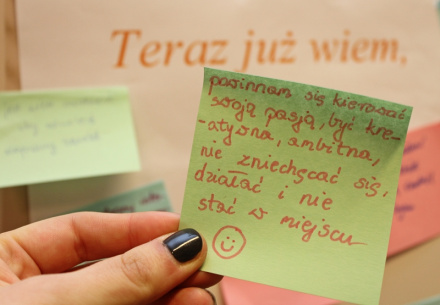 Teraz już wiem,
powinnam się kierować
swoją pasją, być kre-
-atywna, ambitna,
nie zniechęcać się,
działać i nie
stać w miejscu